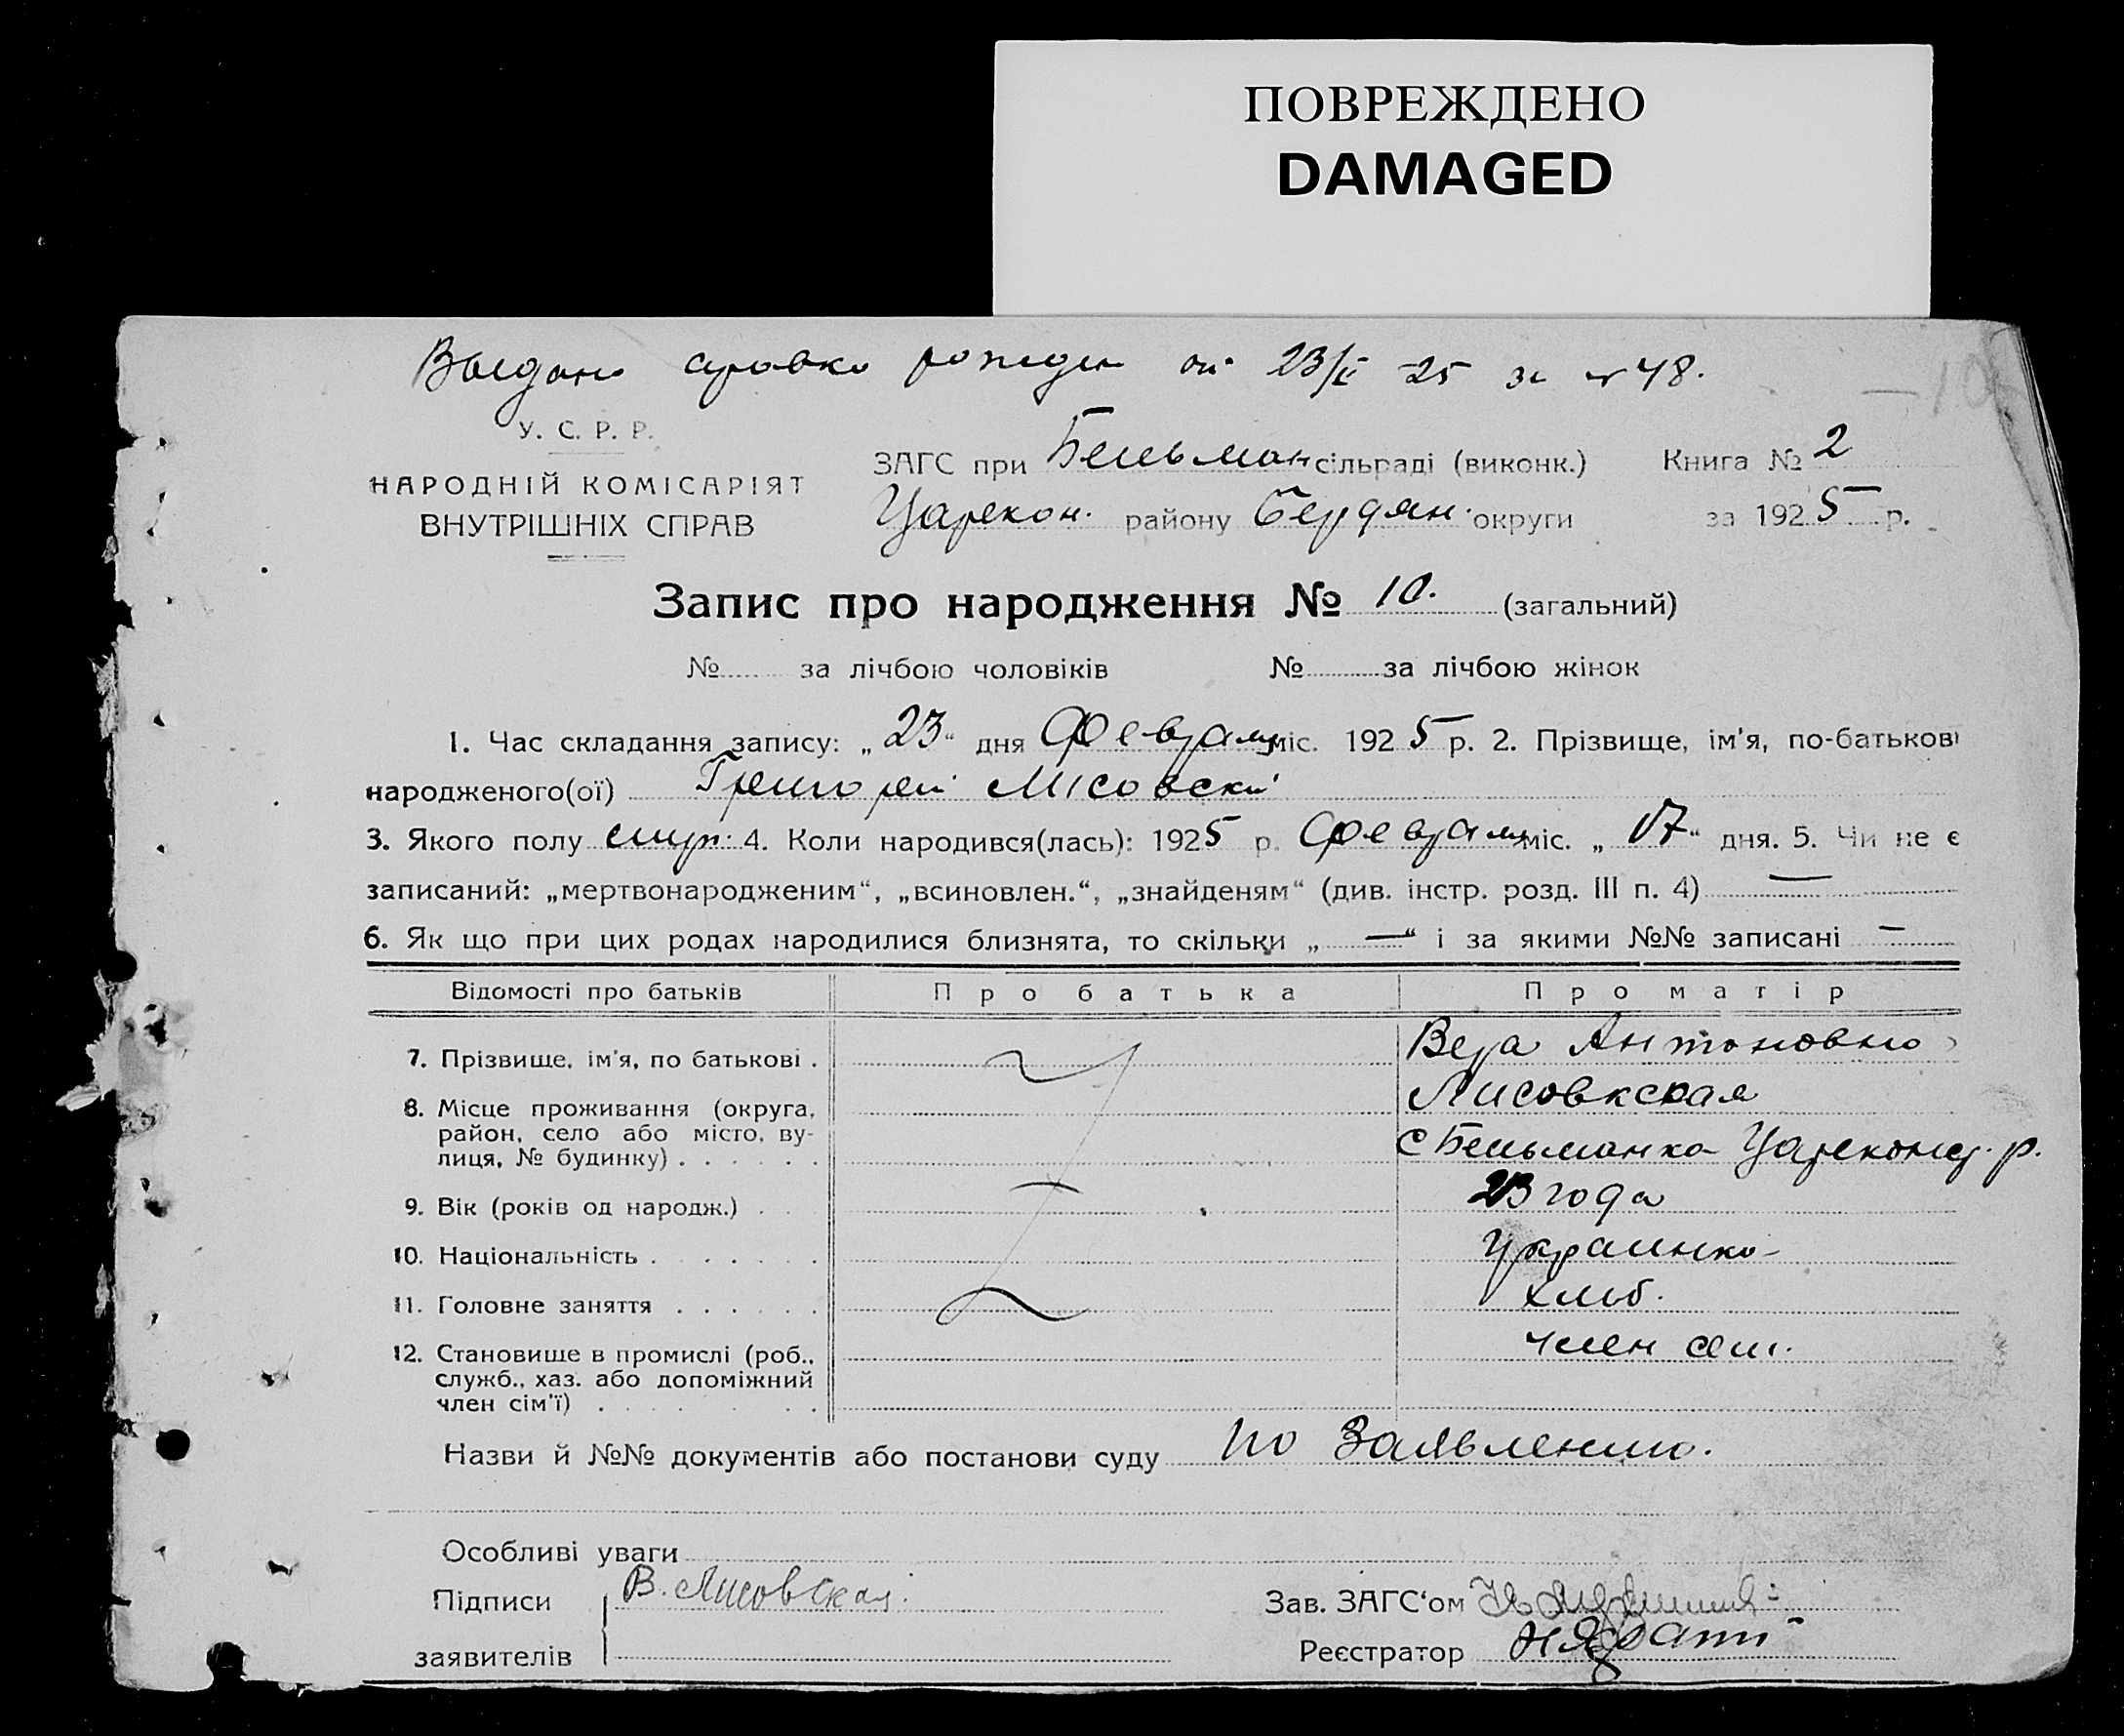 ПОВРЕЖДЕНО
DAMAGED
Выдана справка рожден от 23/II 25 за № 48.
У. С. Р. Р.
НАРОДНІЙ КОМІСАРІЯТ
ВНУТРІШНІХ СПРАВ
ЗАГС при Бельман сільраді (виконк.) Книга № 2
Царекон. району Бердян. округи за 1925 р.
Запис про народження № 10. (загальний)
№ за лічбою чоловіків № за лічбою жінок
1. Час складання запису: „23“ дня Февраля міс. 1925 р. 2. Прізвище, ім'я, по-батькові
народженого(ої) Григорий Лисовский
3. Якого полу 4. Коли народився(лась): 1925 р. Февраля міс. „17“ дня. 5. Чи не є
записаний: „мертвонародженим“, „всиновлен.“, „знайденям“ (див. інстр. розд. III п. 4) —
6. Як що при цих родах народилися близнята, то скільки „—“ і за якими №№ записані —
Відомості про батьків Про батька Про матір
7. Прізвище, ім'я, по батькові . Вера Антоновна
Лисовкская
8. Місце проживання (округа,
район, село або місто, ву-
лиця, № будинку) . . . . . . с Бельманка Цареконс. р.
9. Вік (років од народж.) . . . 23 года
10. Національність . . . . . . Украинка
11. Головне заняття . . . . . . хлеб.
12. Становище в промислі (роб.,
служб., хаз. або допоміжний
член сім'ї) . . . . . . член сем.
Назви й №№ документів або постанови суду по Заявлению.
Особливі уваги
Підписи В. Лисовская
заявителів
Зав. ЗАГС‘ом
Реєстратор